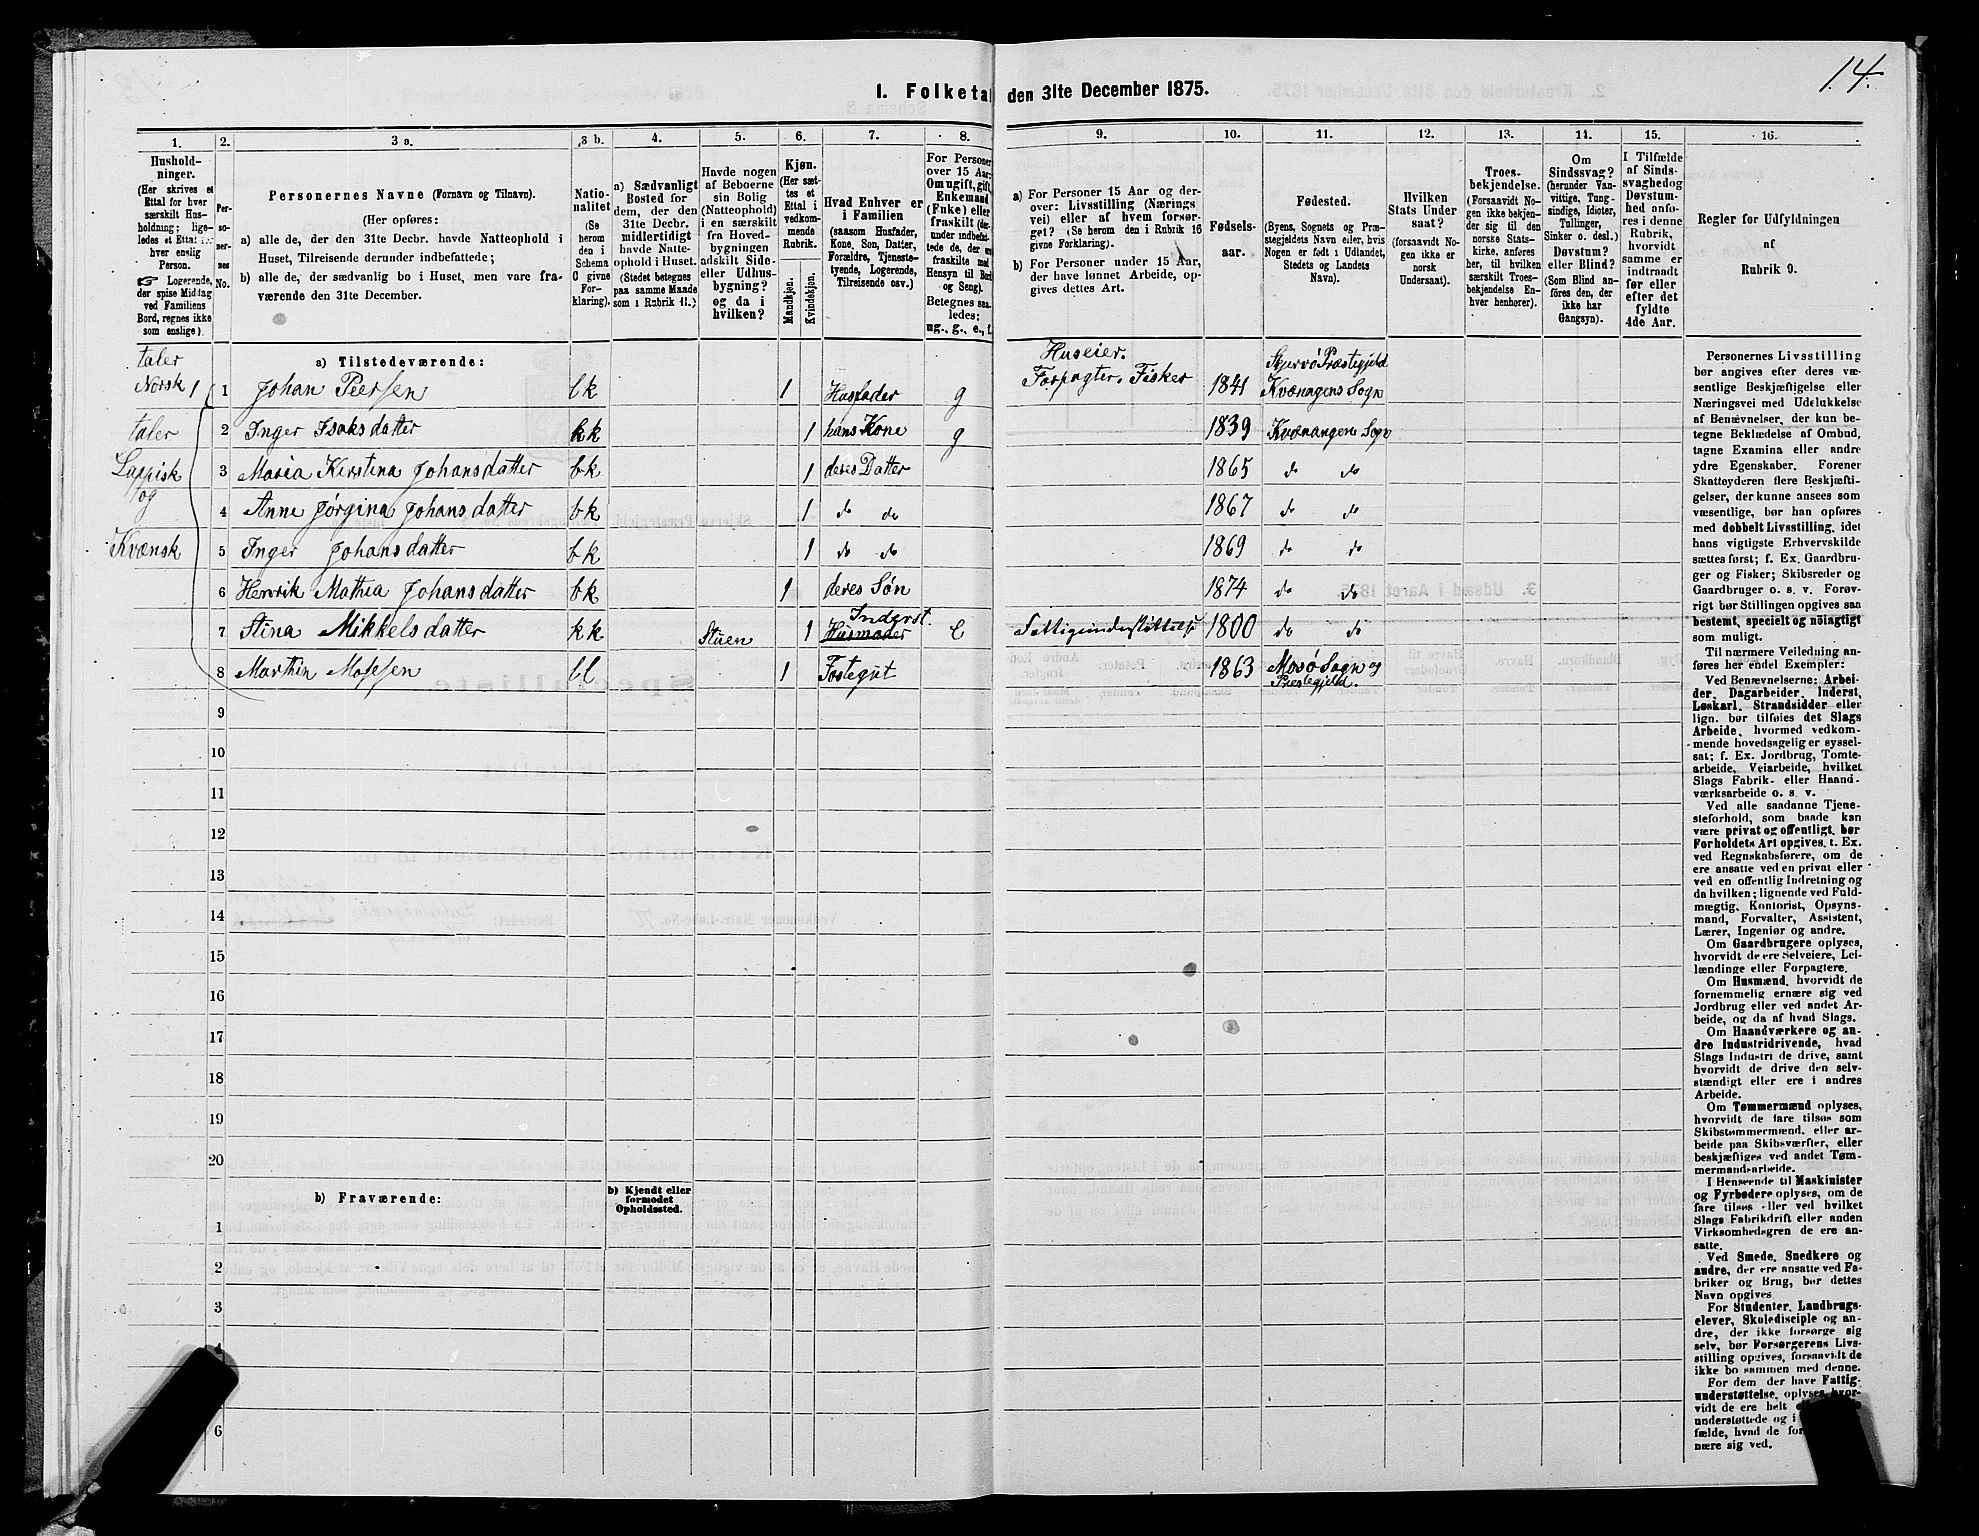 14.
1. Folketal den 31te December 1875.
1. 2. 3 a. 3 b. 4. 5. 6. 7. 8. 9. 10. 11. 12. 13. 14. 15. 16.
Hushold-
ninger.
(Her skrives et
Ettal for hver
særskilt Hus-
holdning; lige-
ledes et Ettal for
hver enslig
Person.
☞ Logerende,
der spise Middag
ved Familiens
Bord, regnes ikke
som enslige).
Per-
so-
ner-
nes
No.
Personernes Navne (Fornavn og Tilnavn).
(Her opføres:
a) alle de, der den 31te Decbr. havde Natteophold i
Huset, Tilreisende derunder indbefattede;
b) alle de, der sædvanlig bo i Huset, men vare fra-
værende den 31te December.
Natio-
nalitet
(Se
herom
den i
Schema
C givne
For-
klaring).
a) Sædvanligt
Bosted for
dem, der den
31te Decbr.
midlertidigt
havde Natte-
ophold i Huset.
(Stedet betegnes
paa samme Maade
som i Rubrik 11.)
Havde nogen
af Beboerne
sin Bolig
(Natteophold)
i en særskilt
fra Hoved-
bygningen
adskilt Side-
eller Udhus-
bygning?
og da i
hvilken?
Kjøn.
(Her sæt-
tes et
Ettal i
vedkom-
mende
Rubrik.
Mandkjøn.
Kvindekjøn.
Hvad Enhver er
i Familien
(saasom Husfader,
Kone, Søn, Datter,
Forældre, Tjeneste-
tyende, Logerende,
Tilreisende osv.)
For Personer
over 15 Aar:
Om ugift, gift,
Enkemand
(Enke) eller
fraskilt (der-
under indbefat-
tede de, der ere
fraskilte med
Hensyn til Bord
og Seng).
Betegnes saa-
ledes:
ug., g., e., f.
a) For Personer 15 Aar og der-
over: Livsstilling (Nærings-
vei) eller af hvem forsør-
get? (Se herom den i Rubrik 16
givne Forklaring).
b) For Personer under 15 Aar,
der have lønnet Arbeide, op-
gives dettes Art.
Fødsels-
aar.
Fødested.
(Byens, Sognets og Præ-
stegjeldets Navn eller, hvis
Nogen er født i Udlandet,
Stedets og Landets
Navn).
Hvilken
Stats Under
saat?
(forsaavidt No-
gen ikke er
norsk
Undersaat).
Troes-
bekjendelse.
(Forsaavidt No-
gen ikke bekjen-
der sig til den
norske Stats-
kirke, anføres
her, til hvilken
særskilt Troes-
bekjendelse En-
hver henhører).
Om
Sindssvag?
(herunder Van-
vittige, Tung-
sindige, Idioter,
Tullinger,
Sinker o. desl.)
Døvstum?
eller Blind?
(Som Blind an-
føres den, der
ikke har
Gangsyn).
I Tilfælde
af Sinds-
svaghed og
Døvstum-
hed anfø-
res i denne
Rubrik,
hvorvidt
samme er
indtraadt
før eller
efter det
fyldte
4de Aar.
Regler for Udfyldningen
af
Rubrik 9.
a) Tilstedeværende:
taler
Norsk 1
taler
Lappisk
og
Kvænsk
Huseier. Skjervø Præstegjeld
1 Johan Peersen bk 1 Husfader g Forpagter. Fisker 1841 Kvænagens Sogn
2 Inger Isaksdatter kk 1 hans Kone g 1839 Kvænangens Sogn
3 Maria Kerstina Johansdatter bk 1 deres Datter 1865 do do
4 Anne Jørgina Johansdatter bk 1 do do 1867 do do
5 Inger Johansdatter bk 1 do do 1869 do do
6 Henrik Mathia Johansdatter bk 1 deres Søn 1874 do do
Inderst.
7 Stina Mikkelsdatter kk Stuen 1 Husmoder E Fattigunderstøttelse 1800 do do
8 Marthin Mossen bl 1 Fostegut 1863 Mosø Sogn og
Præstegjeld.
9
10
11
12
13
14
15
16
17
18
19
20
b) Fraværende:
b) Kjendt eller
formodet
Opholdssted.
1
2
3
4
6
Personernes Livsstilling
bør angives efter deres væ-
sentlige Beskjæftigelse eller
Næringsvei med Udelukkelse
af Benævnelser, der kun be-
tegne Beklædelse af Ombud,
tagne Examina eller andre
ydre Egenskaber. Forener
Skatteyderen flere Beskjæfti-
gelser, der kunne ansees som
væsentlige, bør han opføres
med dobbelt Livsstilling, idet
hans vigtigste Erhvervskilde
sættes først; f. Ex. Gaardbru-
ger og Fisker; Skibsreder og
Gaardbruger o. s. v. Forøv-
rigt bør Stillingen opgives saa
bestemt, specielt og nøiagtigt
som muligt.
Til nærmere Veiledning an-
føres her endel Exempler:
Ved Benævnelserne: Arbei-
der, Dagarbeider, Inderst,
Løskarl, Strandsidder eller
lign. bør tilføies det Slags
Arbeide, hvormed vedkom-
mende hovedsagelig er syssel-
sat; f. Ex. Jordbrug, Tomte-
arbeide, Veiarbeide, hvilket
Slags Fabrik- eller Haand-
værksarbeide o. s. v.
Ved alle saadanne Tjene-
steforhold, som baade kan
være privat og offentligt, bør
Forholdets Art opgives, t. Ex.
ved Regnskabsførere, om de
ere ansatte ved en privat eller
ved en offentlig Indretning og
da hvilken; lignende ved Fuld-
mægtig, Kontorist, Opsyns-
mand, Forvalter, Assistent,
Lærer, Ingeniør og andre.
Om Gaardbrugere oplyses,
hvorvidt de ere Selveiere, Lei-
lændinge eller Forpagtere.
Om Husmænd, hvorvidt de
fornemmelig ernære sig ved
Jordbrug eller ved andet Ar-
beide, og da af hvad Slags.
Om Haandværkere og an-
dre Industridrivende, hvad
Slags Industri de drive, samt
hvorvidt de drive den selv-
stændigt eller ere i andres
Arbeide.
Om Tømmermænd oplyses,
hvorvidt de fare tilsøs som
Skibstømmermænd, eller ar-
beide paa Skibsværfter, eller
beskjæftiges ved andet Tøm-
mermandsarbeide.
I Henseende til Maskinister
og Fyrbødere oplyses, om de
fare tilsøs eller ved hvilket
Slags Fabrikdrift eller anden
Virksomhedsgren de ere an-
satte.
Ved Smede, Snedkere og
andre, der ere ansatte ved Fa-
briker og Brug, bør dettes
Navn opgives.
For Studenter, Landbrugs-
elever, Skoledisciple og an-
dre, der ikke forsørge sig
selv, bør Forsørgerens Livs-
stilling opgives, forsaavidt de
ikke bo sammen med denne.
For dem, der have Fattig-
understøttelse, oplyses, hvor-
vidt de ere helt
understøttede og i
fælde, hvad de for
nære sig ved.